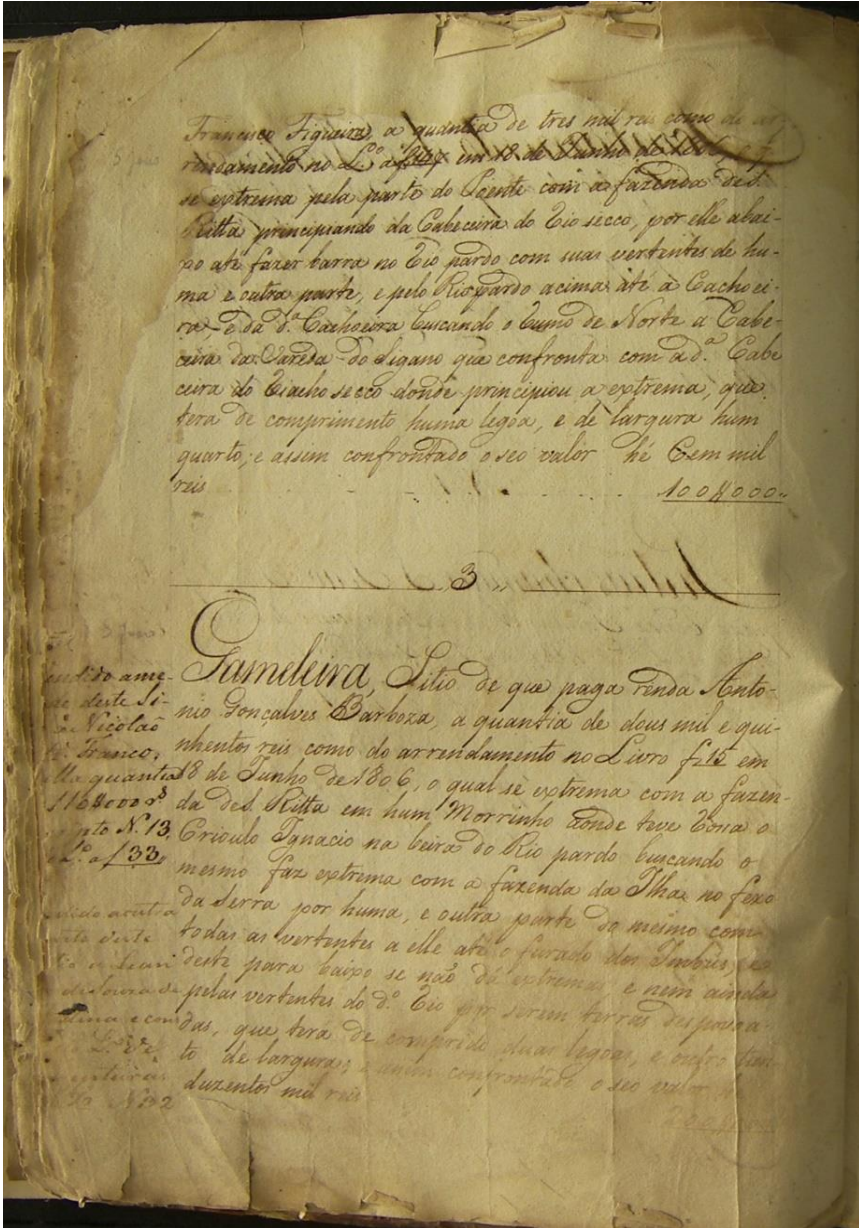 Francisco Figueira, a quantia de tres mil reis como do ar-
rendamento no L.º a f14 em 18 de Junho de 1806, o q.
se extrema pela parte do Poente com a fazenda de S.
Ritta principiando da Cabeceira do Rio secco, por elle abai-
xo até fazer barra no Rio pardo com suas vertentes de hu-
ma e outra parte, e pelo Rio pardo acima até a Cachoei-
ra, e da d.ª Cachoeira buscando o Rumo de Norte a Cabe-
ceira da Vareda do Sigano que confronta com a d.ª Cabe
ceira do Riacho secco donde principiou a extrema, que
tera de comprimento huma legoa, e de largura hum
quarto, e assim confrontado o seo valor hé Cem mil
reis 100$000
3
Gameleira, Sitio de que paga renda Anto-
nio Gonçalves Barboza, a quantia de dous mil e qui-
nhentos reis como do arrendamento no Livro f15 em
18 de Junho de 1806, o qual se extrema com a fazen-
da de S. Ritta em hum Morrinho aonde teve Rossa o
Crioulo Ignacio na beira do Rio pardo buscando o
mesmo faz extrema com a fazenda da Ilha no fexo
da Serra por huma, e outra parte do mesmo com
todas as vertentes a elle até o furado dos Imbús, e
deste para baixo se não dá extremas e nem ainda
pelas vertentes do d.º Rio por serem terras despovoa-
das, que tera de comprido duas legoas, e outro tan-
to de largura, e assim confrontado o seo valor hé
duzentos mil reis
200$000
vendido ame-
de deste Si-
Nicoláo
Franco,
quantia
110$000 r.s
N. 13
L.º a f33
outra
deste
Souza
L.º
N.2